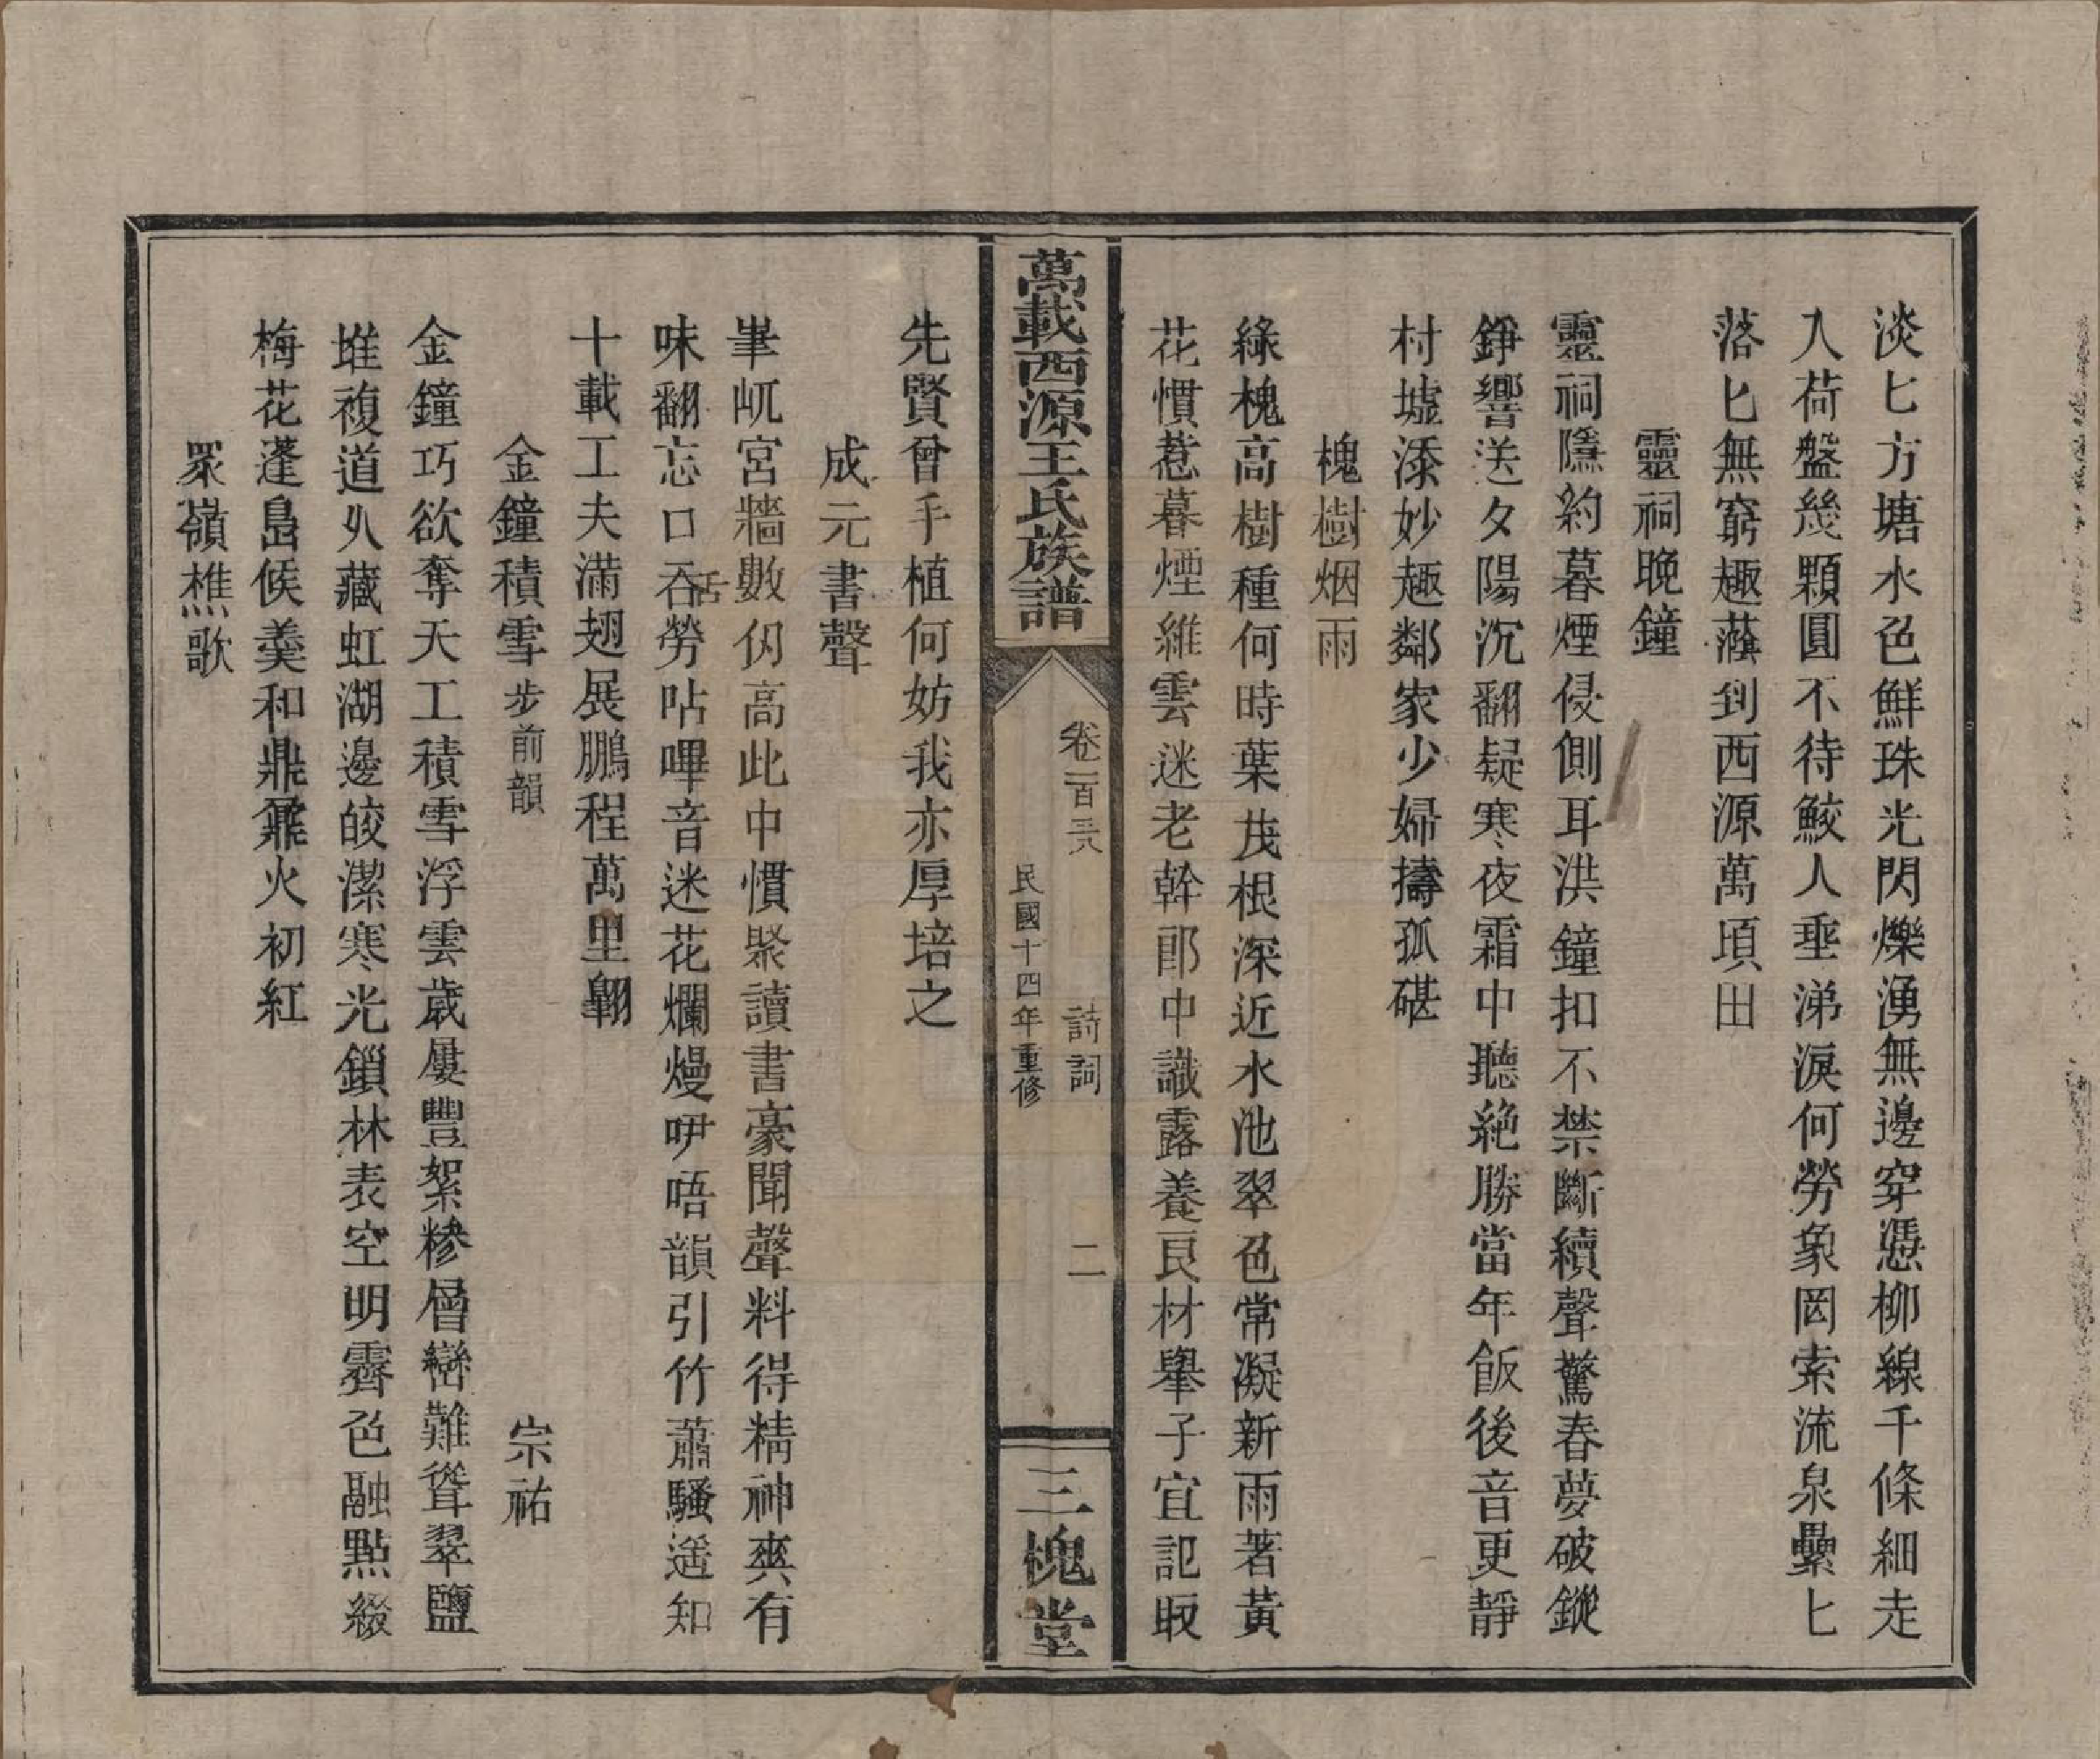 淡匕方塘水色鮮珠光閃爍湧無邊穿憑柳線千條細走
入荷盤幾顆圓不待鮫人垂涕淚何勞象罔索流泉纍匕
落匕無窮趣蔭到西源萬頃田
靈祠晚鐘
靈祠隱約暮煙侵側耳洪鐘扣不禁斷續聲驚春夢破鏦
錚響送夕陽沉翻疑寒夜霜中聽絶勝當年飯後音更靜
村墟添妙趣鄰家少婦擣孤碪
槐樹烟雨
綠槐高樹種何時葉茂根深近水池翠色常凝新雨著黃
花慣惹暮煙維雲迷老幹郎中識露養良材舉子宜記取
萬載西源王氏族譜
卷一百三六
詩詞
二
民國十四年重修
三槐堂
先賢曾手植何妨我亦厚培之
成元書聲
峯屼宮牆數仭高此中慣聚讀書豪聞聲料得精神爽有
味翻忘口舌勞呫嗶音迷花爛熳吚唔韻引竹蕭騷遥知
十載工夫滿翅展鵬程萬里翺
金鐘積雪步前韻
宗祐
金鐘巧欲奪天工積雪浮雲歲屢豐絮糝層巒難聳翠鹽
堆複道乆藏虹湖邊皎潔寒光鎖林表空明霽色融點綴
梅花蓬島候羹和鼎鼐火初紅
眾嶺樵歌